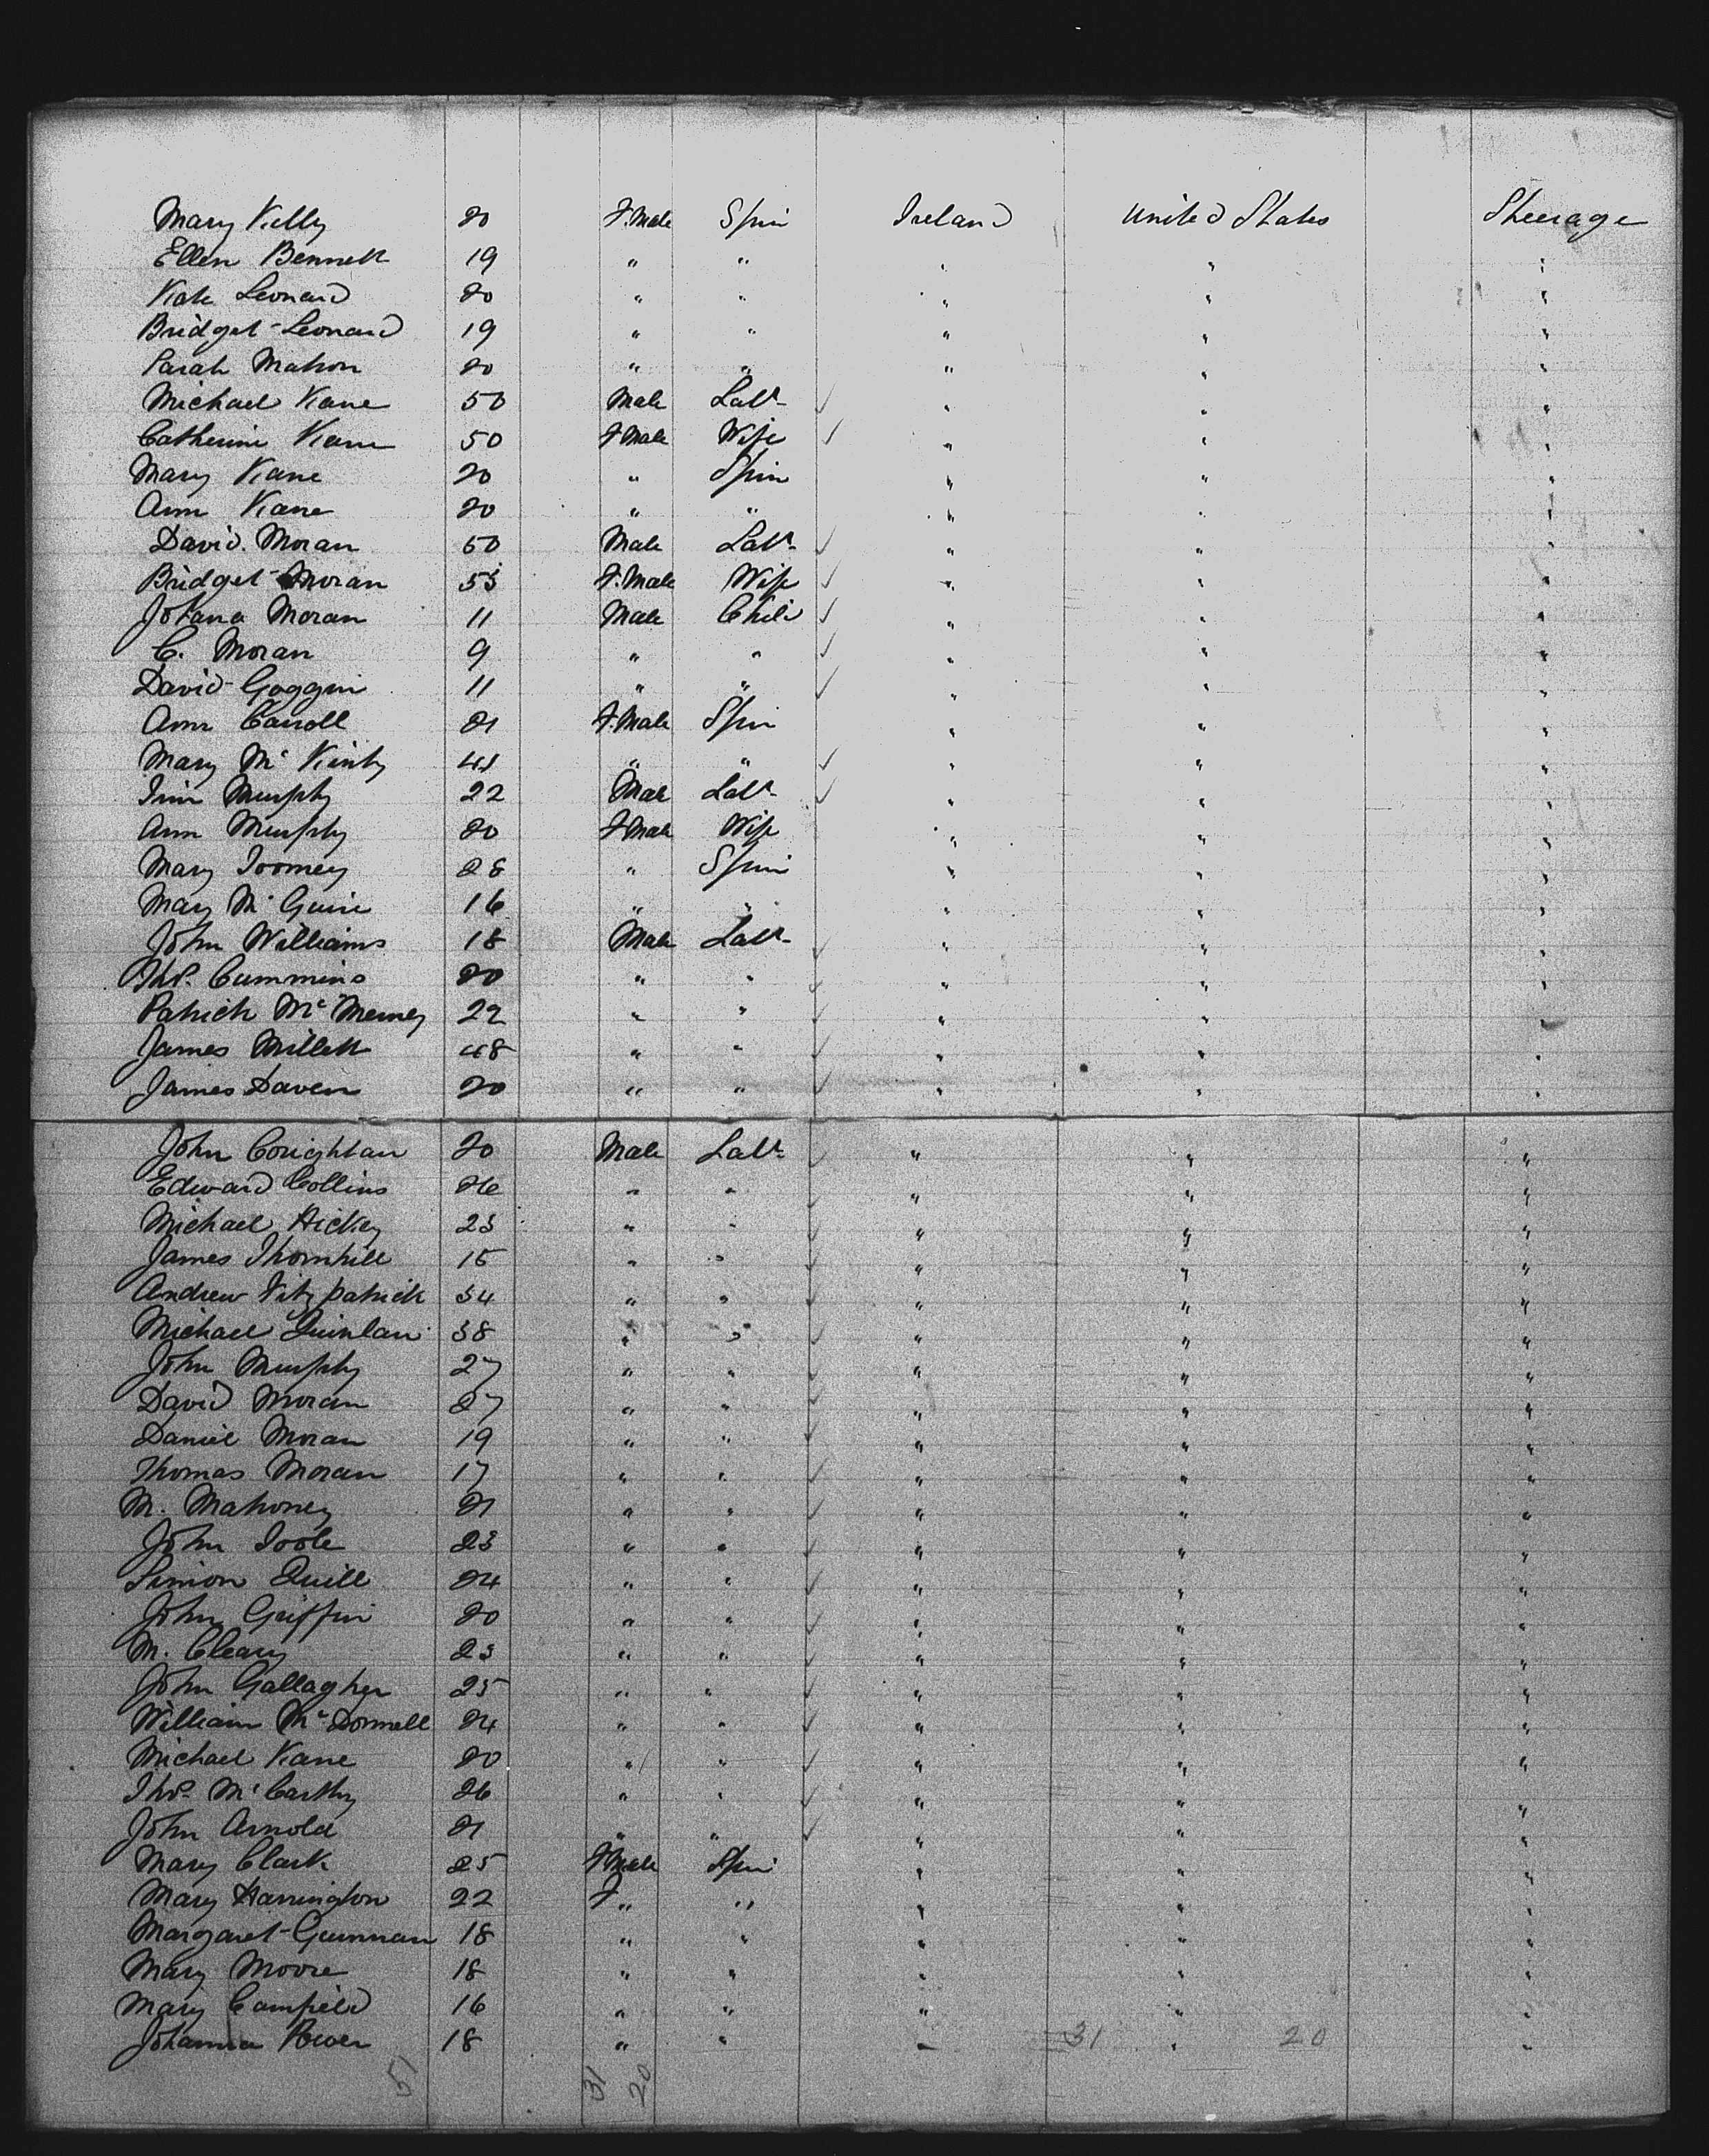 Mary Kelly 20 F.Male Spin Ireland United States Steerage
Ellen Bennett 19 " " " " "
Kate Leonard 20 " " " " "
Bridget Leonard 19 " " " " "
Sarah Mahon 20 " " " " "
Michael Kane 50 Male Labr ✓ " " "
Catherine Kane 50 F Male Wife ✓ " " "
Mary Kane 20 " Spin " " "
Ann Kane 20 " " " " "
David Moran 50 Male Labr ✓ " " "
Bridget Moran 55 F.Male Wife ✓ " " "
Johana Moran 11 Male Child ✓ " " "
C. Moran 9 " " ✓ " " "
David Goggin 11 " " ✓ " " "
Ann Carroll 21 F.Male Spin " " "
Mary Mc " " ✓ " " "
Jim Murphy 22 Male Labr ✓ " " "
Ann Murphy 20 F Male Wife " " "
Mary Toomey 28 " Spin " " "
Mary McGuire 16 " " " " "
John Williams 18 Male Labr ✓ " " "
Thos. Cummins 20 " " ✓ " " "
Patrick 22 " " ✓ " " "
James Millett 48 " " ✓ " " "
James Daven 20 " " ✓ " " "
John Coughlan 20 Male Labr ✓ " " "
Edward Collins 26 " " ✓ " " "
Michael Hickey 23 " " ✓ " " "
James Thornhill 15 " " ✓ " " "
Andrew Fitzpatrick 34 " " ✓ " " "
Michael Quinlan 38 " " ✓ " " "
John Murphy 27 " " ✓ " " "
David Moran 27 " " ✓ " " "
Daniel Moran 19 " " ✓ " " "
Thomas Moran 17 " " ✓ " " "
M. Mahoney 21 " " ✓ " " "
John Toole 23 " " ✓ " " "
Simon Quill 24 " " ✓ " " "
John Griffin 20 " " ✓ " " "
M. Cleary 23 " " ✓ " " "
John Gallagher 25 " " ✓ " " "
William McDonnell 24 " " ✓ " " "
Michael Kane 20 " " ✓ " " "
Thos. McCarthy 26 " " ✓ " " "
John Arnold 21 " " ✓ " " "
Mary Clark 25 F Male Spin " " "
Mary Harrington 22 F " " " " "
Margaret 18 " " " " "
Mary Moore 18 " " " " "
Mary Camfield 16 " " " " "
Johanna Power 18 " " " 31 " 20 "
51 31 20